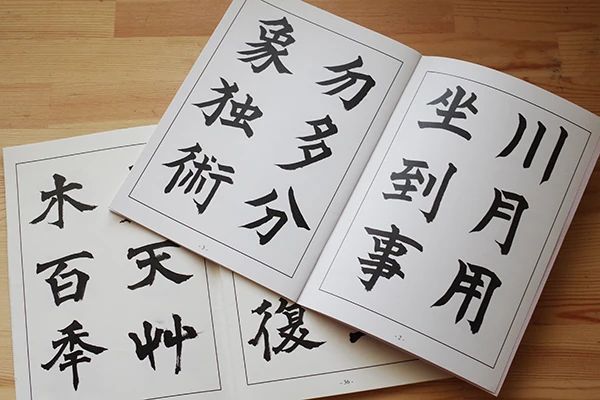 川月用
坐到事
-2-
勿多分
象独術
-3-
天艸
木百秊
復
-36-